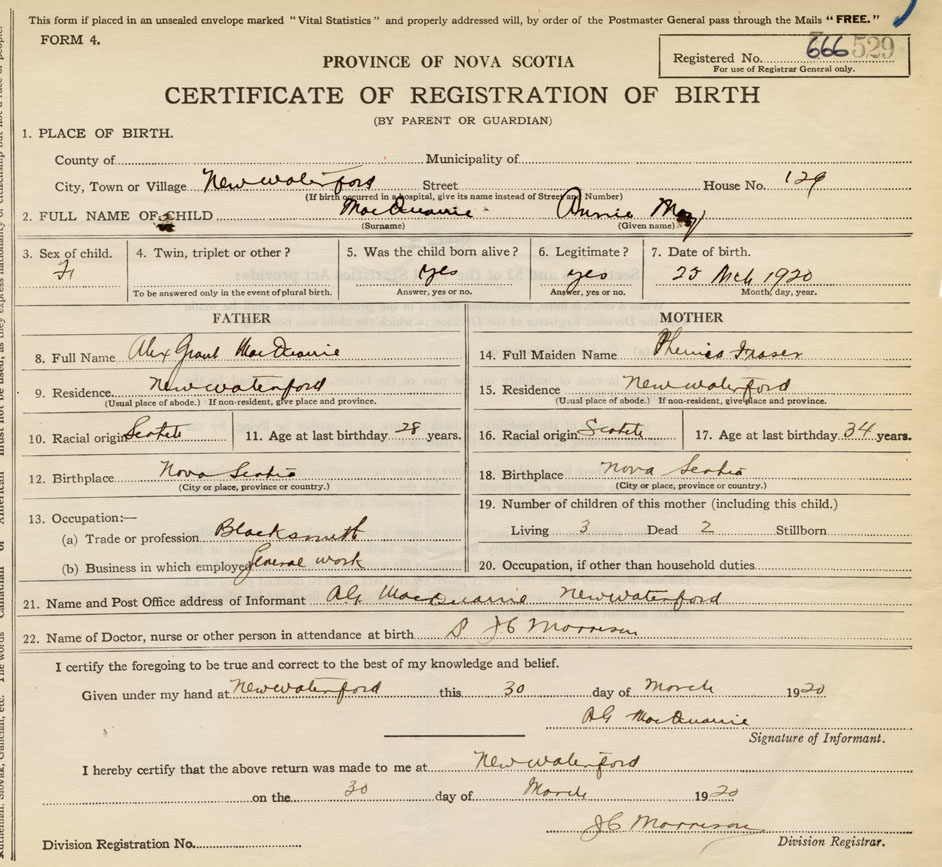 This form if placed in an unsealed envelope marked "Vital Statistics" and properly addressed will, by order of the Postmaster General pass through the Mails "FREE."
FORM 4.
Registered No. 666 529
For use of Registrar General only.
PROVINCE OF NOVA SCOTIA
CERTIFICATE OF REGISTRATION OF BIRTH
(BY PARENT OR GUARDIAN)
1. PLACE OF BIRTH.
County of Municipality of
City, Town or Village New Waterford Street House No. 129
(If birth occurred in a hospital, give its name instead of Street and Number)
2. FULL NAME OF CHILD MacQuarrie Annie May
(Surname) (Given name)
3. Sex of child. 4. Twin, triplet or other? 5. Was the child born alive? 6. Legitimate? 7. Date of birth.
F yes yes 25 Mch 1920
To be answered only in the event of plural birth. Answer, yes or no. Answer, yes or no. Month, day, year.
FATHER MOTHER
8. Full Name Alex Grant MacQuarrie 14. Full Maiden Name Fraser
9. Residence New Waterford 15. Residence New Waterford
(Usual place of abode.) If non-resident, give place and province. (Usual place of abode.) If non-resident, give place and province.
10. Racial origin Scotch 11. Age at last birthday 28 years. 16. Racial origin Scotch 17. Age at last birthday 34 years.
12. Birthplace Nova Scotia 18. Birthplace Nova Scotia
(City or place, province or country.) (City or place, province or country.)
13. Occupation:— 19. Number of children of this mother (including this child.)
(a) Trade or profession Blacksmith Living 3 Dead 2 Stillborn
(b) Business in which employed General work 20. Occupation, if other than household duties
21. Name and Post Office address of Informant AG MacQuarrie New Waterford
22. Name of Doctor, nurse or other person in attendance at birth JC Morrison
I certify the foregoing to be true and correct to the best of my knowledge and belief.
Given under my hand at New Waterford this 30 day of March 1920
AG MacQuarrie
Signature of Informant.
I hereby certify that the above return was made to me at New Waterford
on the 30 day of March 1920
JC Morrison
Division Registration No. Division Registrar.